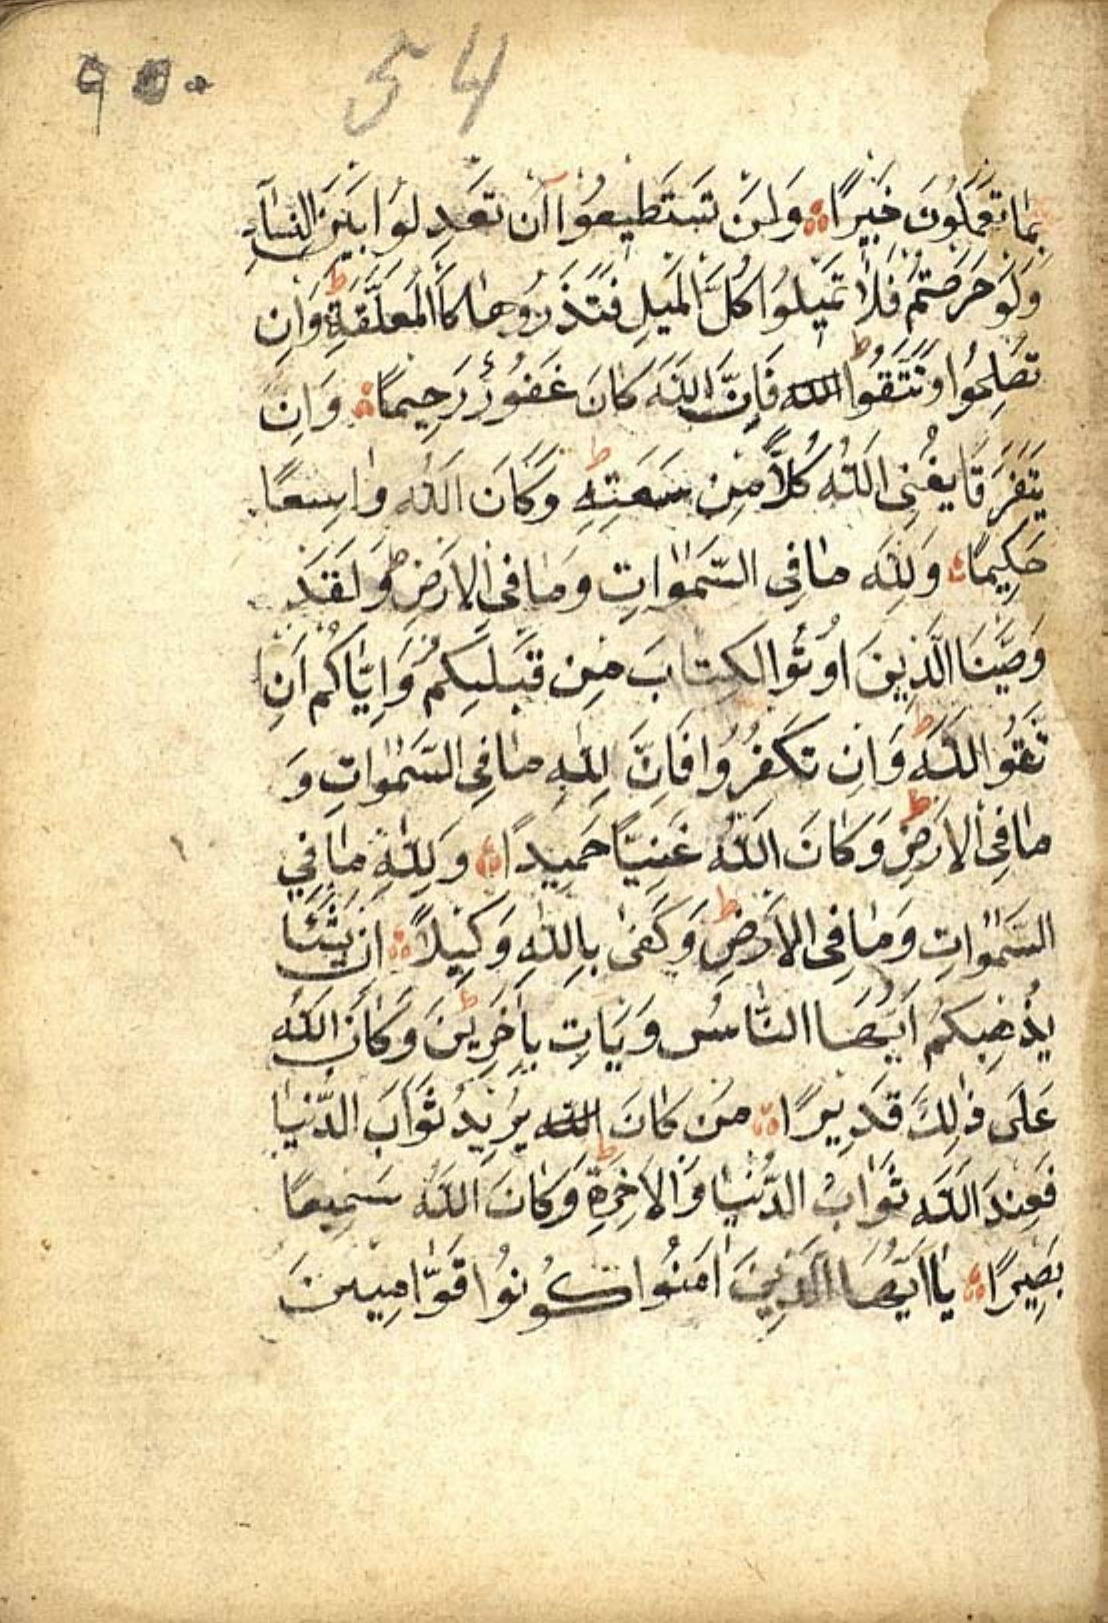 ٩ ٥٠ 54
بِمَا تَعْمَلُونَ خَبِيرًا وَلَنْ تَسْتَطِيعُوا آنْ تَعْدِلُوا بَيْنَ النِّسَآءِ
وَلَوْ حَرَصْتُمْ فَلَا تَمِيلُوا كُلَّ الْمَيْلِ فَتَذَرُوهَا كَالْمُعَلَّقَةِ ط وَاِنْ
تُصْلِحُوا وَتَتَّقُوا ط الله فَاِنَّ اللّٰهَ كَانَ غَفُورًرَحِيمًا وَاِنْ
يَتَفَرَّقَا يُغْنِى اللّٰهُ كُلًّا مِنْ سَعَتِهِ ط وَكَانَ اللّٰهُ وَاسِعًا
حَكِيمًا وَلِلّٰهِ مَا فِى السَّمٰوَاتِ وَمَا فِى الْاَرْضِ ط وَلَقَدْ
وَصَّيْنَا الَّذِينَ اُوتُوا الْكِتَابَ مِنْ قَبْلِكُمْ وَاِيَّاكُمْ اَنِ
تَّقُوا اللّٰهَ ط وَاِنْ تَكْفُرُوا فَاِنَّ لِلّٰهِ مَا فِى السَّمٰوَاتِ وَ
مَا فِى الْاَرْضِ ط وَكَانَ اللّٰهُ غَنِيًّا حَمِيدًا وَلِلّٰهِ مَا فِي
السَّمٰوَاتِ وَمَا فِى الْاَرْضِ ط وَكَفٰى بِاللّٰهِ وَكِيلًا اِنْ يَشَا
يُذْهِبْكُمْ اَيُّهَا النَّاسُ وَيَاتِ بِاٰخَرِينَ ط وَكَانَ اللّٰهُ
عَلَى ذٰلِكَ قَدِيرًا مَنْ كَانَ الله يُرِيدُ ثَوَابَ الدُّنْيَا
فَعِنْدَ اللّٰهِ ثَوَابُ الدُّنْيَا وَالْاٰخِرَةِ ط وَكَانَ اللّٰهُ سَمِيعًا
بَصِيرًا يَا اَيُّهَا الَّذِينَ اٰمَنُوا كُونُوا قَوَّامِيينَ